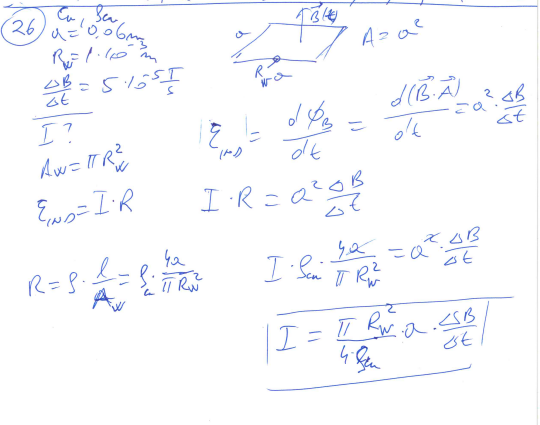 26 Cu, ρcu
a = 0.06m
R_W = 1·10⁻³ m
ΔB/Δt = 5·10⁻⁵ T/s
I?
A_W = π R_W²
ε_IND = I·R
R = ρ · l/A_W = ρ_cu · 4a/(π R_W²)
a B⃗(t) A = a²
R_W a
|ε_IND| = dφ_B/dt = d(B⃗·A⃗)/dt = a² · ΔB/Δt
I·R = a² ΔB/Δt
I · ρcu · 4a/(π R_W²) = a² · ΔB/Δt
I = (π R_W²)/(4·ρcu) · a · ΔB/Δt